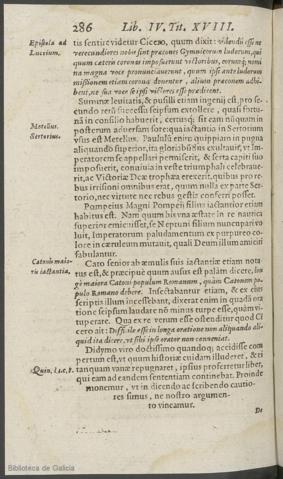 286 Lib. IV. Tit. XVIII.
Epistola ad
Luccium.
tis sentire videtur Cicero, quum dixit: videndū esse ne
verecundiores nobis sint præcones Gymnicorum ludorum, qui
quum cæteris coronas imposuerunt victoribus, eorumq; nomi
na magna voce pronunciauerunt, quum ipsi ante ludorum
missionem etiam corona donentur, alium præconem adhi
bent, ne sua voce se ipsi victores esse prædicent.
Summæ leuitatis, & pusilli etiam ingenij est, pro se-
cundo rerū successu seipsum extollere, quasi fortu-
nā in consilio habuerit, certusq; sit eam nūquam in
posterum aduersam fore: qua iactantia in Sertorium
Metellus.
Sertorius.
vsus est Metellus. Paululū enim quippiam in pugna
aliquando superior, ita gloriabūdus exultauit, vt Im-
peratorem se appellari permiserit, & serta capiti suo
imposuerit, conuiuia in veste triumphali celebraue-
rit, ac Victoriæ Deæ trophæa erexerit, quibus pro re-
bus irrisioni omnibus erat, quum nulla ex parte Ser-
torio, nec virtute nec rebus gestis conferri posset.
Pompeius Magni Pompeij filius iactantior etiam
habitus est. Nam quum bis vna æstate in re nautica
superior emicuisset, se Neptuni filium nuncupari vo
luit, Imperatorum paludamentum ex purpureo co-
lore in cæruleum mutauit, quali Deum illum amiciri
fabulantur.
Catonis maio-
ris iactantia.
Cato senior ab æmulis suis iactantiæ etiam nota-
tus est, & præcipuè quum ausus est palàm dicere, lon
gè maiora Catoni populum Romanum, quàm Catonem po-
pulo Romano debere. Insectabantur etiam, & ex eius
scriptis illum incessebant, dixerat enim in quadā ora
tione seipsum laudare nō minus turpe esse, quàm vi-
tuperare. Qua ex re verum esse ostenditur quod Ci
cero ait: Difficile esse in longa oratione non aliquando ali-
quid ita dicere, vt sibi ipse orator non conueniat.
Didymo viro doctissimo quandoq; accidisse com
pertum est, vt quum historiæ cuidam illuderet, & ti
Quin. l.1.c.8.
tanquam vanæ repugnaret, ipsius proferretur liber,
qui eam ad eandem sententiam continebat. Proin de
monemur, vt in dicendo ac scribendo cautio-
res simus, ne nostro argumen-
to vincamur.
De
Biblioteca de Galicia